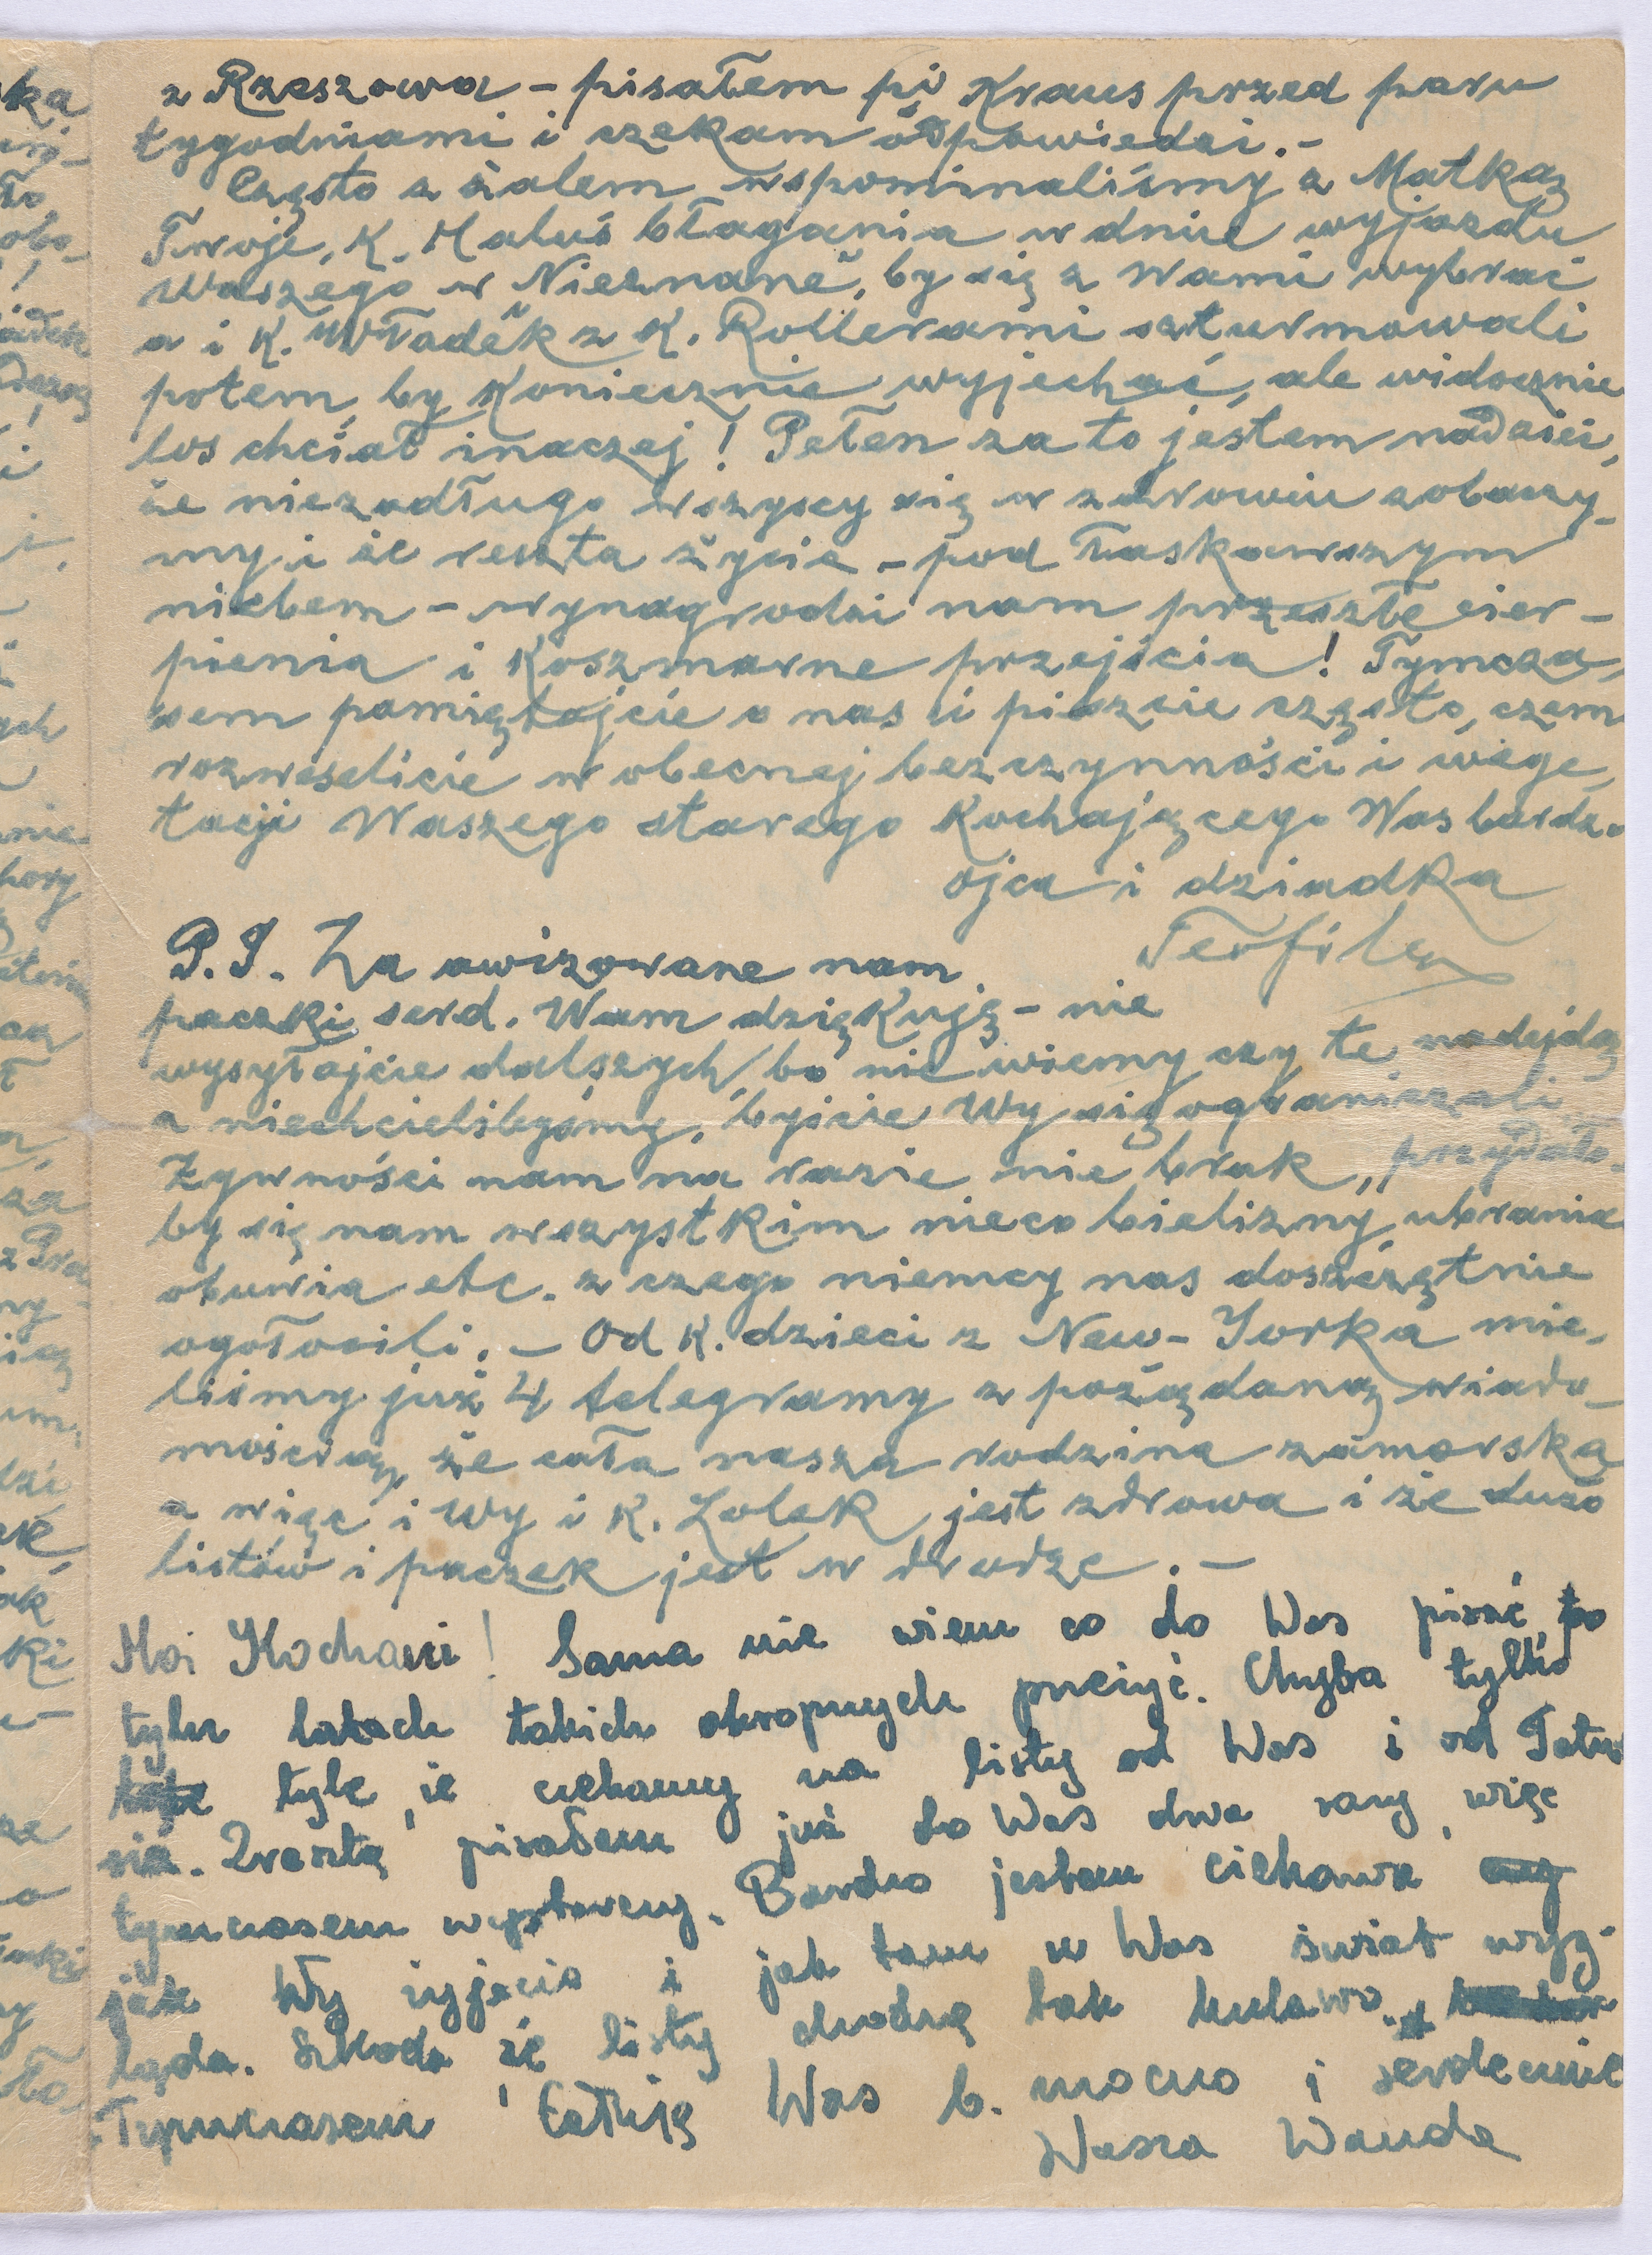 z Rzeszowa – pisałem pi Kraus przed paru
tygodniami i czekam odpowiedzi. –
Często z żalem wspominaliśmy z Matką
Twoje, K. Maluś błagania w dniu wyjazdu
Waszego w "Nieznane", by się z Wami wybrać
a i K. Władek z K. Rollerami szturmowali
potem, by koniecznie wyjechać, ale widocznie
los chciał inaczej! Pełen za to jestem nadziei,
że niezadługo wszyscy się w zdrowiu zobaczy-
my i że reszta życia – pod łaskawszym
niebem – wynagrodzi nam przeszłe cier-
pienia i koszmarne przejścia! Tymcza-
sem pamiętajcie o nas i piszcie często, czem
rozweselicie w obecnej bezczynności i wege-
tacji Waszego starego kochającego Was bardzo
ojca i dziadka
Teofila
P.S. Za awizowane nam
paczki serd. Wam dziękuję – nie
wysyłajcie dalszych, bo nie wiemy czy te nadejdą
a niechcielibyśmy, byście Wy się ograniczali
Żywności nam na razie nie brak, przydało-
by się nam wszystkim nieco bielizny, ubrania
obuwia etc. z czego niemcy nas doszczętnie
ogołocili. – Od K. dzieci z New-Yorka mie-
liśmy już 4 telegramy z pożądaną wiado-
mością, że cała nasza rodzina zamorska
a więc i Wy i K. Lolek jest zdrowa i że dużo
listów i paczek jest w drodze. –
Moi Kochani! Sama nie wiem co do Was pisać, po
tylu latach takich okropnych przeżyć. Chyba tylko
tyle, że czekamy na listy od Was i od Tatu-
sia. Zresztą pisałam już do Was dwa razy, więc
tymczasem wystarczy. Bardzo jestem ciekawa
jak Wy żyjecie i jak tam u Was świat wyg-
ląda. Szkoda że listy chodzą tak kulawo.
Tymczasem całuję Was b. mocno i serdecznie
Wasza Wanda